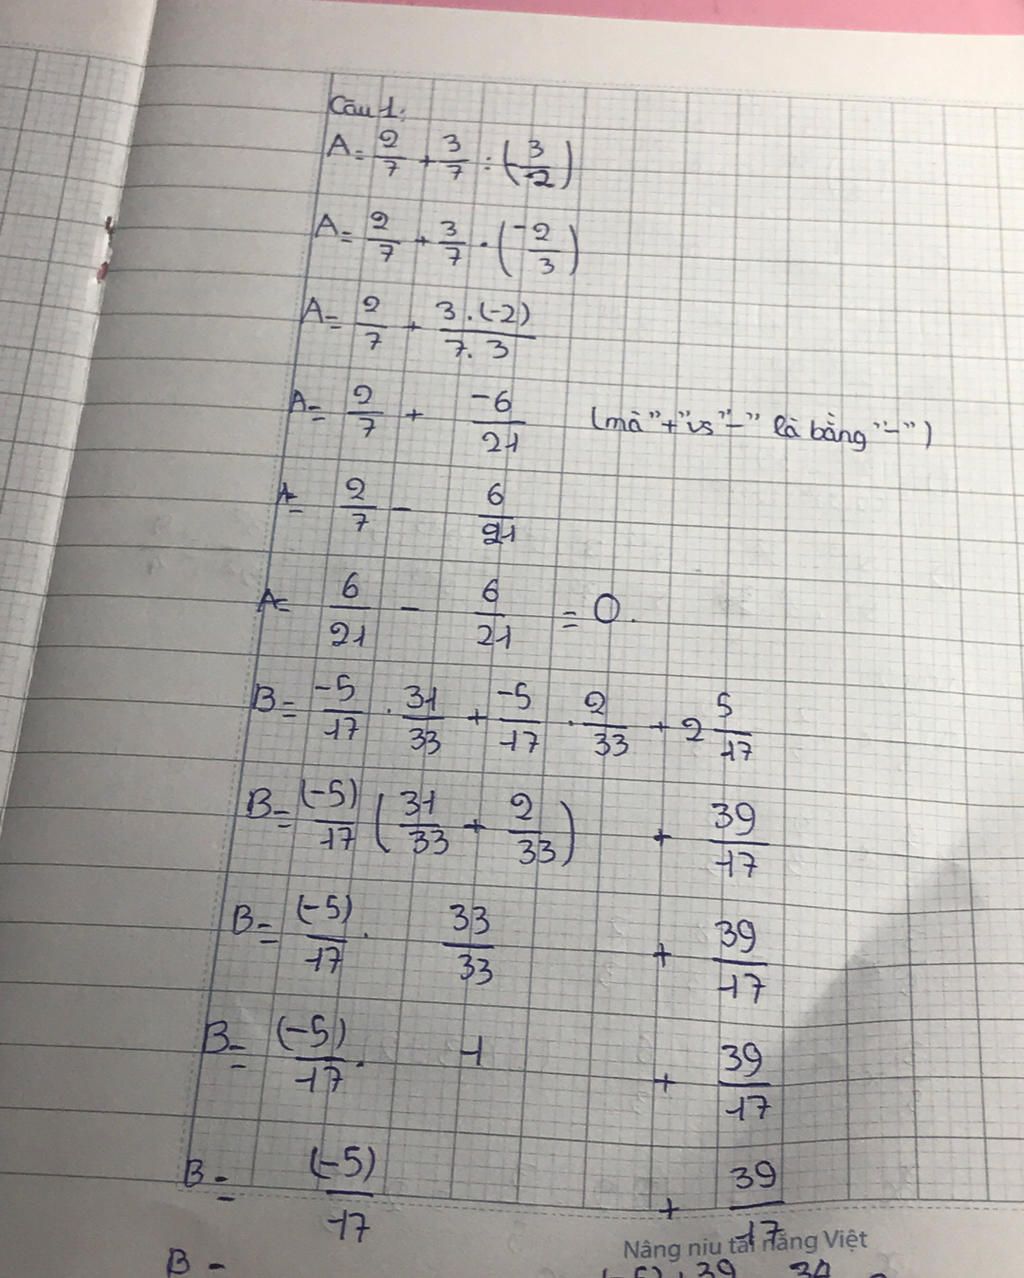 Câu 1:
A = 2/7 + 3/7 : (3/-2)
A = 2/7 + 3/7 . (-2/3)
A = 2/7 + 3.(-2)/7.3
A = 2/7 + -6/21 (mà "+" vs "-" là bằng "-")
A = 2/7 - 6/21
A = 6/21 - 6/21 = 0.
B = -5/17 . 31/33 + -5/17 . 2/33 + 2 5/17
B = (-5)/17 (31/33 + 2/33) + 39/17
B = (-5)/17 . 33/33 + 39/17
B = (-5)/17 . 1 + 39/17
B = (-5)/17 + 39/17
Nâng niu tài năng Việt
B =